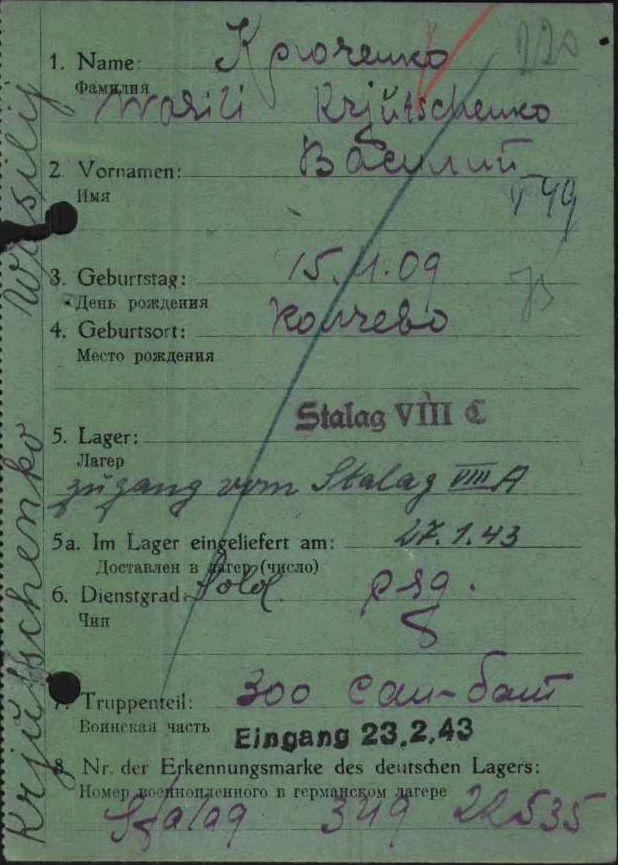 220
1. Name: Крюченко
Фамилия
Wasili Krjutschenko
2. Vornamen: Василий
Имя
V 49
3. Geburtstag: 15.11.09
День рождения
4. Geburtsort: Колчево
Место рождения
Stalag VIII C
5. Lager:
Лагер
zugang vom Stalag VIII A
5a. Im Lager eingeliefert am: 27.1.43
Доставлен в лагер (число)
6. Dienstgrad: Sold.
Чип
7. Truppenteil: 300 сан-бат
Воинская часть
Eingang 23.2.43
8. Nr. der Erkennungsmarke des deutschen Lagers:
Номер военнопленного в германском лагере
Stalag 349 22535
Krjutschenko Wasilij